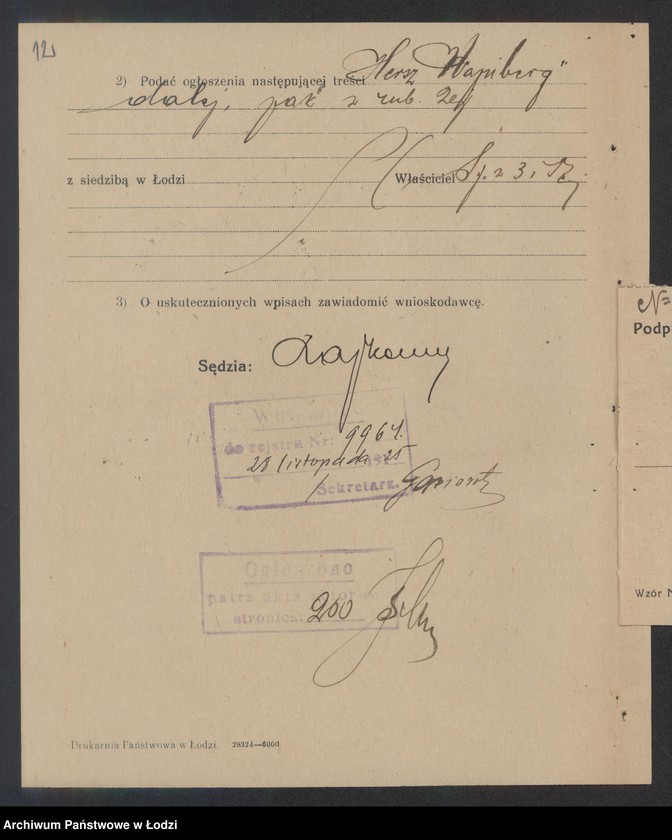 12
2) Podać ogłoszenia następującej treści „Herz Wajnberg"
dalej, jak z rub. 2ej
z siedzibą w Łodzi Właściciel
3) O uskutecznionych wpisach zawiadomić wnioskodawcę.
Sędzia:
do rejstru Nr: 9964.
28 listopada 1925
Sekretarz.
Ogłoszono
patrz akta
stronica: 200
Drukarnia Państwowa w Łodzi. 29324—6000
№
Podp
Wzór N
Archiwum Państwowe w Łodzi